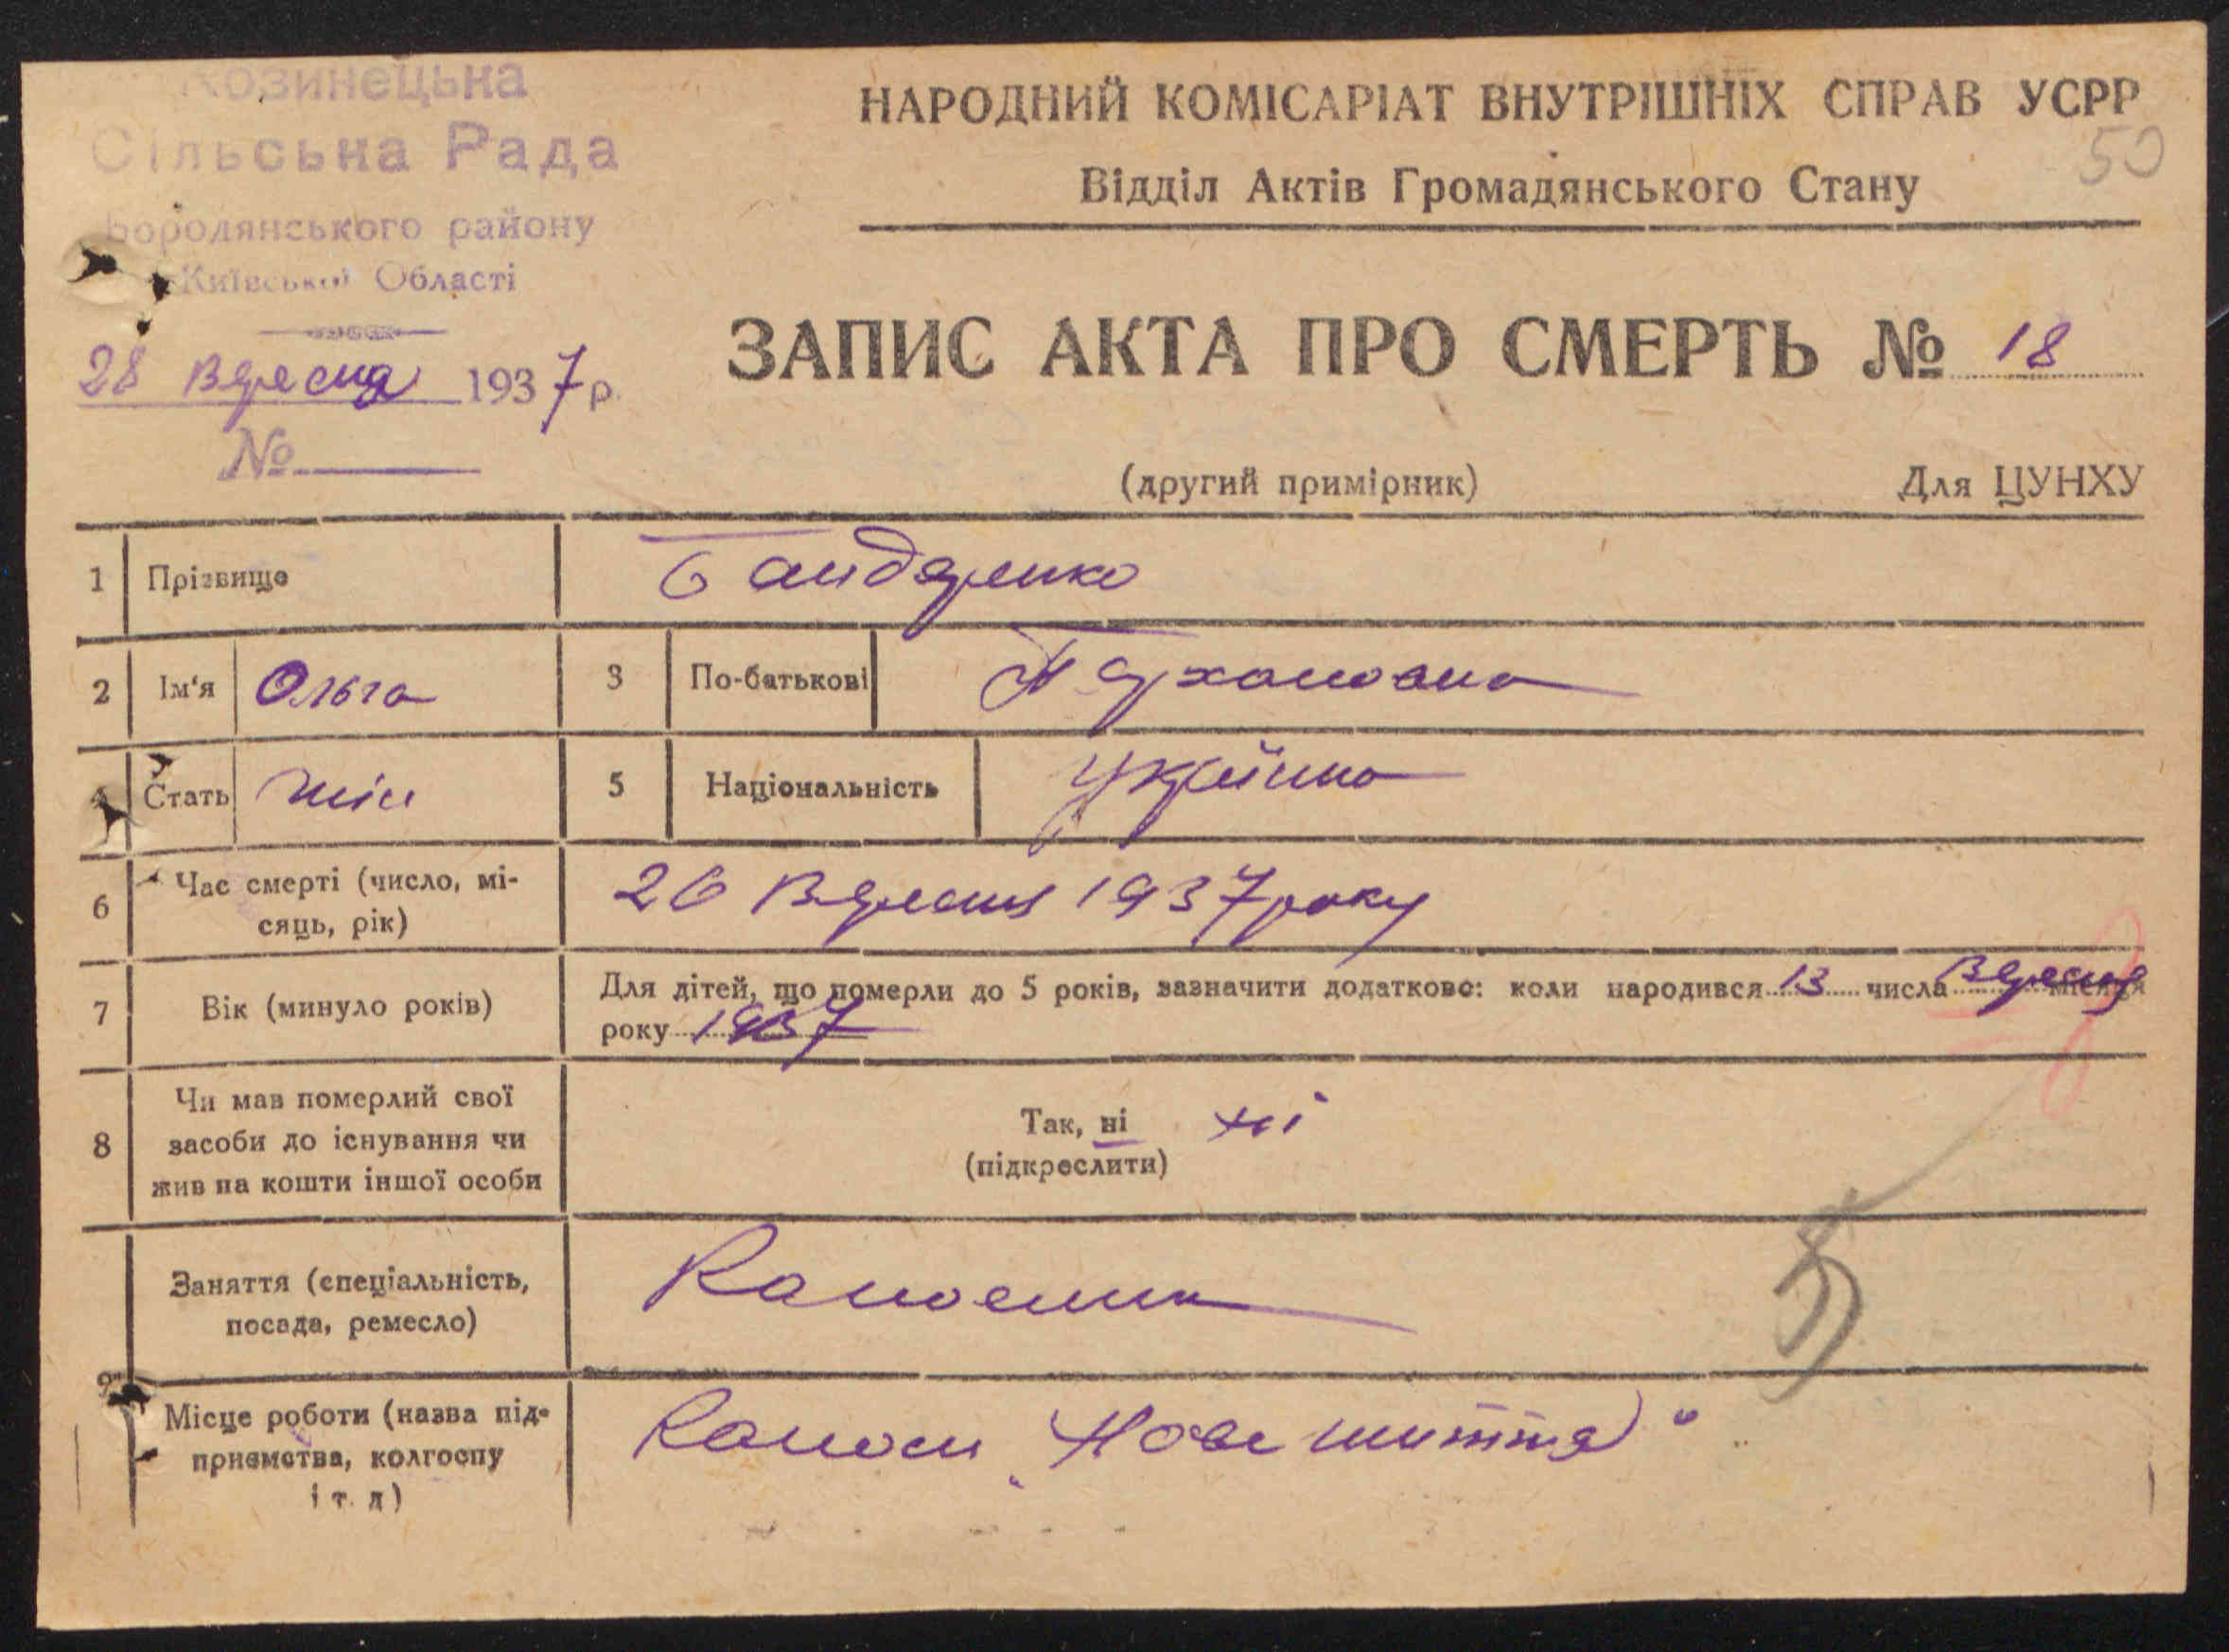 Козинецька
Сільська Рада
Бородянського району
Київської Області
28 Вересня 1937 р.
№
НАРОДНИЙ КОМІСАРІАТ ВНУТРІШНІХ СПРАВ УСРР
50
Відділ Актів Громадянського Стану
ЗАПИС АКТА ПРО СМЕРТЬ № 18
(другий примірник) Для ЦУНХУ
1 Прізвище Бандаренко
2 Ім'я Ольга 3 По-батькові
4 Стать жін 5 Національність Украінка
6 Час смерті (число, мі-
сяць, рік) 26 Вересня 1937 року
7 Вік (минуло років) Для дітей, що померли до 5 років, зазначити додатково: коли народився 13 числа Вересня місяця
року 1937
8 Чи мав померлий свої
засоби до існування чи
жив на кошти іншої особи
Так, ні ні
(підкреслити)
9 Заняття (спеціальність,
посада, ремесло)
Місце роботи (назва під-
приємства, колгоспу
і т. д)
„Нове життя"